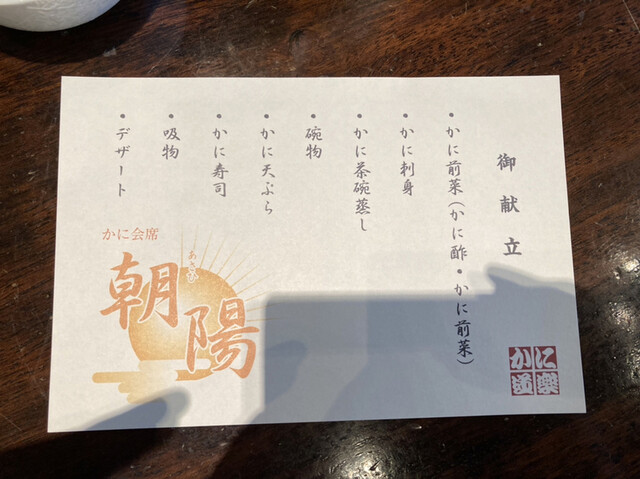 御献立
・かに前菜(かに酢・かに前菜)
・かに刺身
・かに茶碗蒸し
・碗物
・かに天ぷら
・かに寿司
・吸物
・デザート
かに会席
朝陽
あさひ
かに道楽